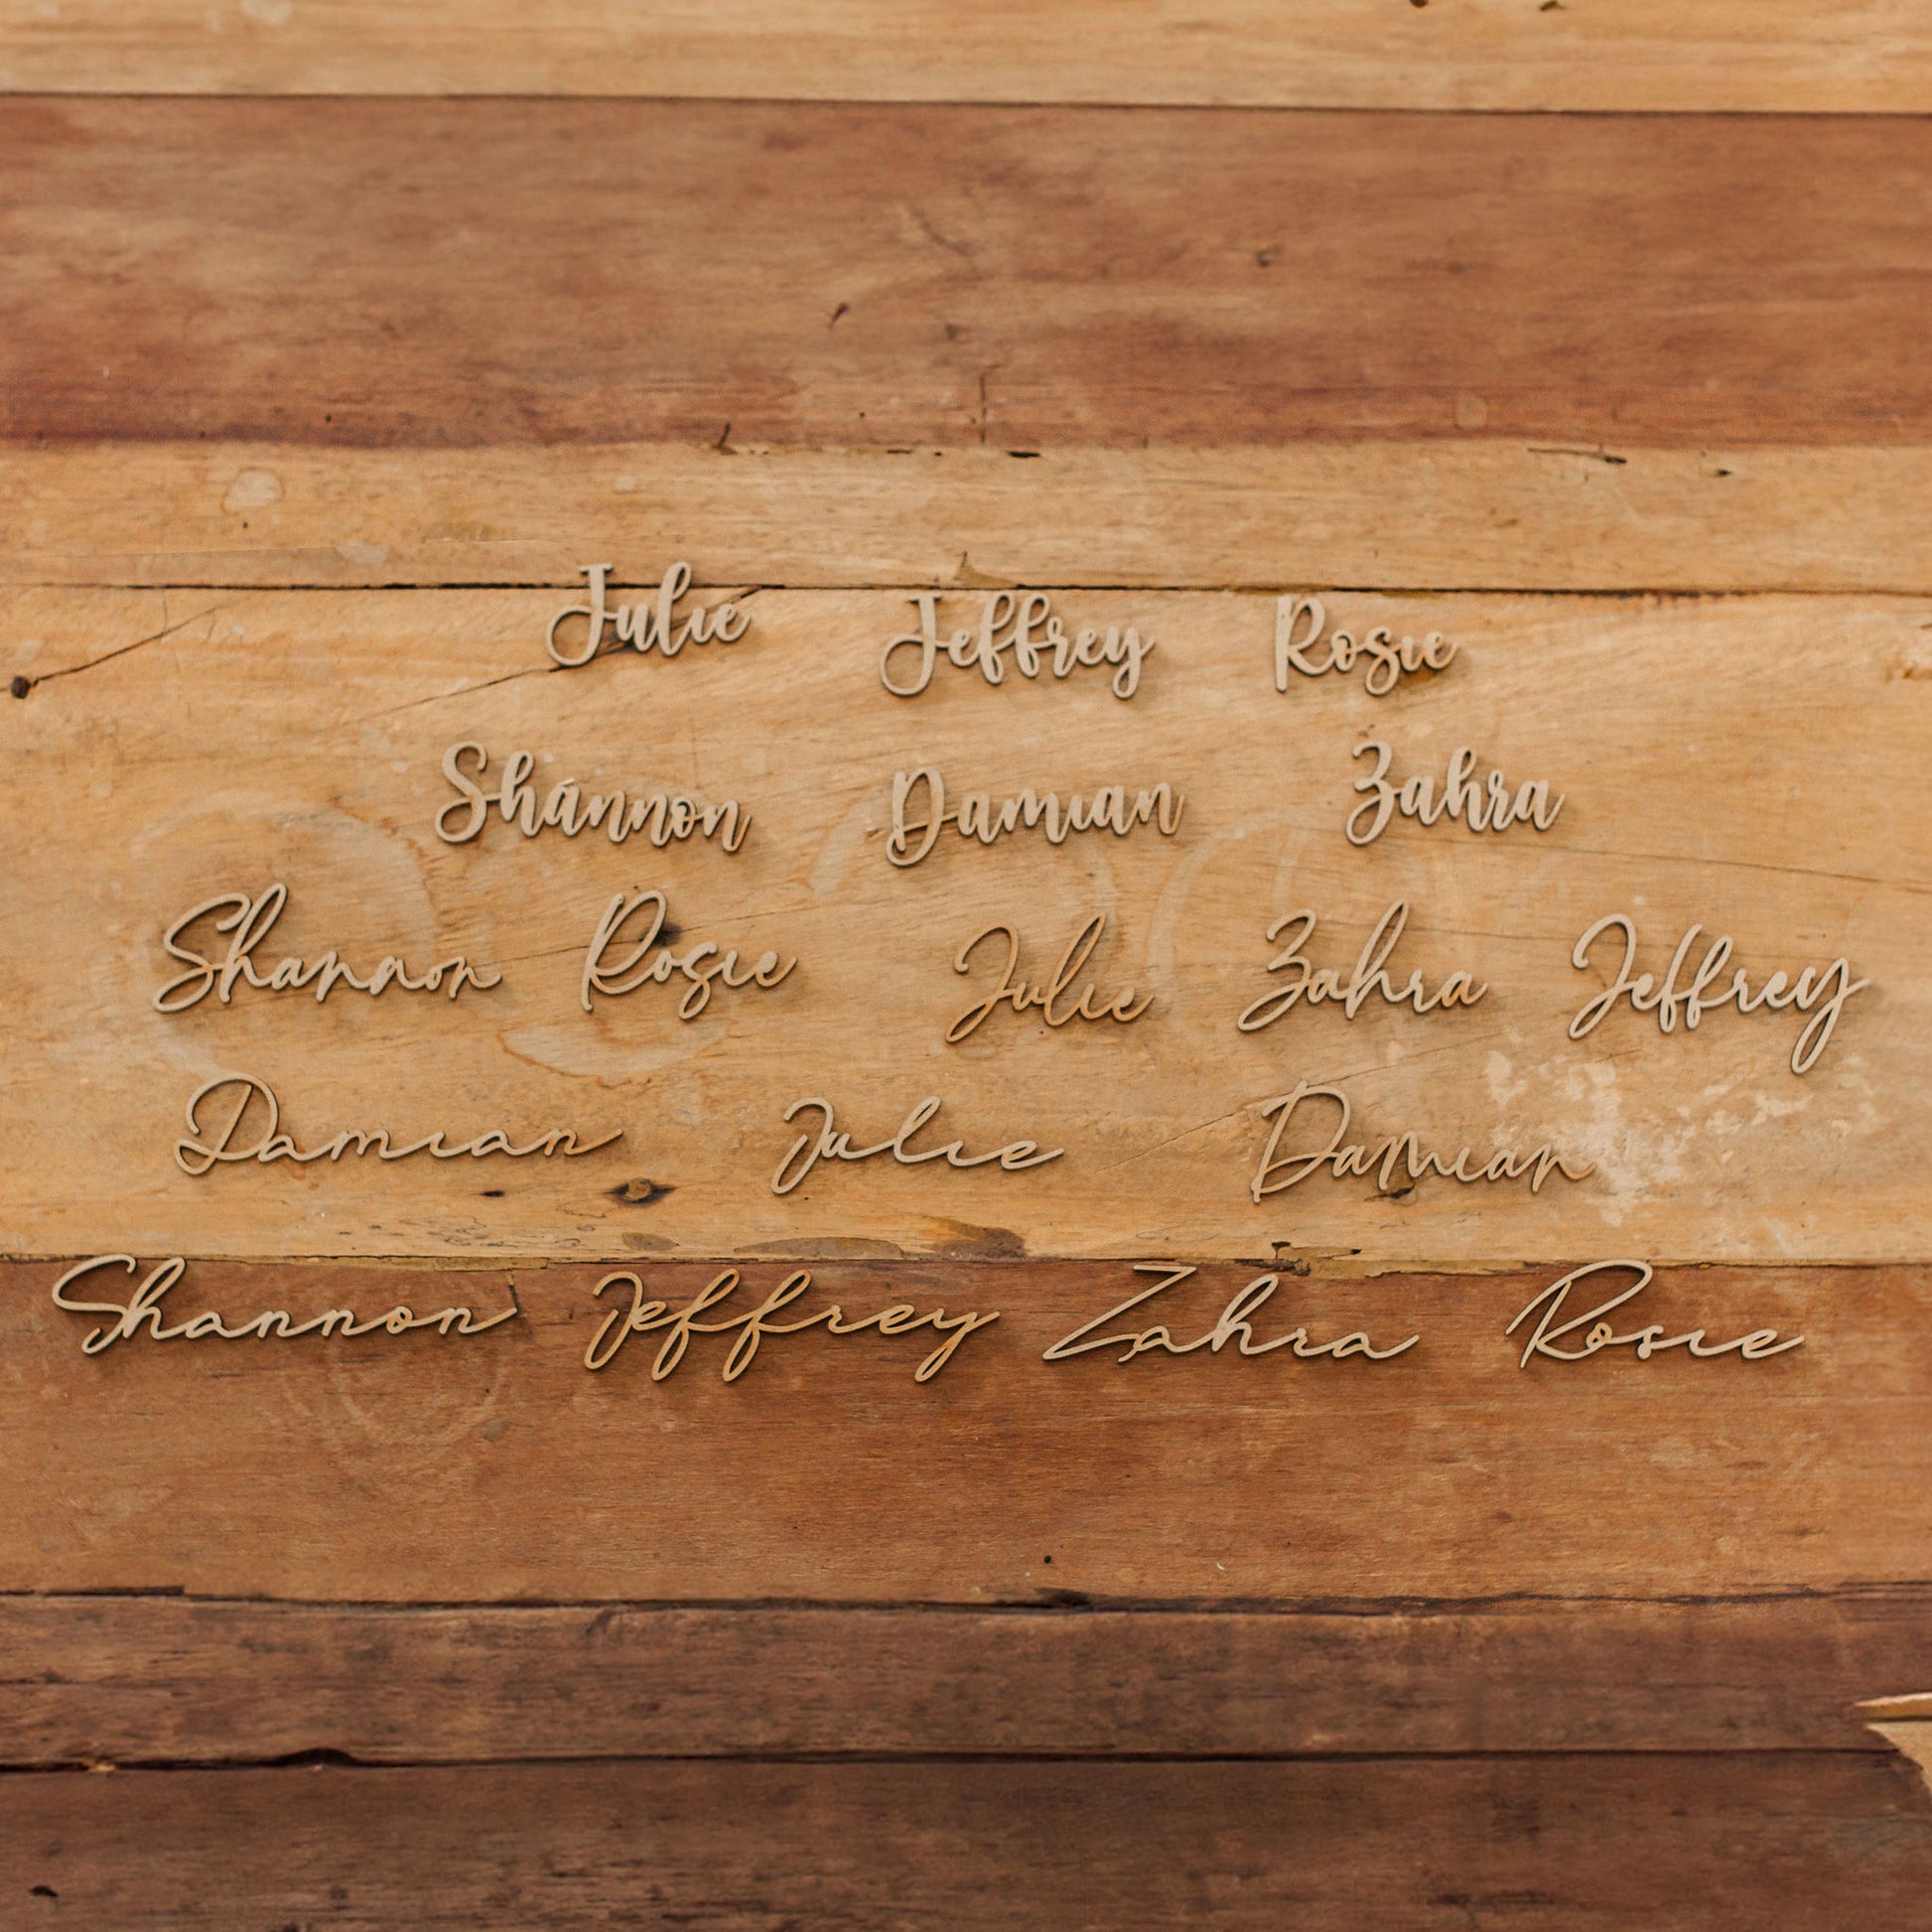 Julie Jeffrey Rosie
Shannon Damian Zahra
Shannon Rosie Julie Zahra Jeffrey
Damian Julie Damian
Shannon Jeffrey Zahra Rosie